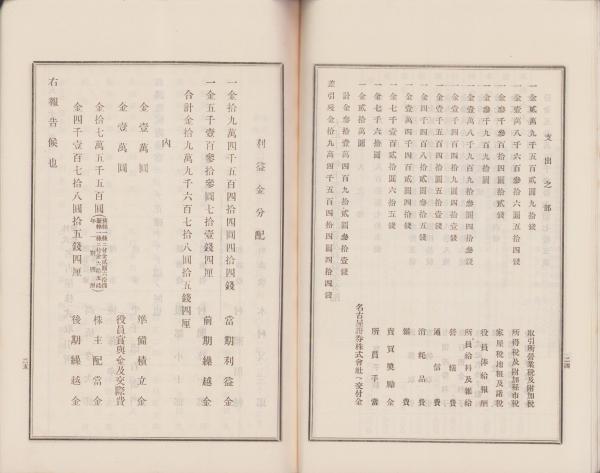 支出之部
一金貳萬九千五百貳圓九拾錢 取引所營業稅及附加稅
一金壹萬八千六百貳拾參圓參拾六錢 所得稅及附加縣市稅
一金參千參百拾四圓拾貳錢 家屋稅地租及諸稅
一金參千九百九拾圓 役員俸給報酬
一金壹萬八千九百九拾參圓參拾壹錢 所員給料及雜給
一金千四百四拾九圓四拾八錢 營繕費
一金壹千五百拾圓五拾壹錢 通信費
一金四千百圓參拾六錢 消耗品費
雜費
一金七千壹百貳拾圓六拾五錢 賣買獎勵金
一金七千六拾圓 所員手當
一金貳拾萬圓 名古屋證券株式會社ヘ交付金
計金參拾壹萬四百九拾貳圓參拾壹錢
差引殘金拾九萬四千五百四拾四圓四拾四錢
二四
利益金分配
一金拾九萬四千五百四拾四圓四拾四錢 當期利益金
一金五千壹百參拾參圓七拾壹錢四厘 前期繰越金
合計金拾九萬九千六百七拾八圓拾五錢四厘
內
金壹萬圓 準備積立金
金壹萬圓 役員賞與金及交際費
金拾七萬五千五百圓 株主配當金
金四千壹百七拾八圓拾五錢四厘 後期繰越金
右報告候也
二五